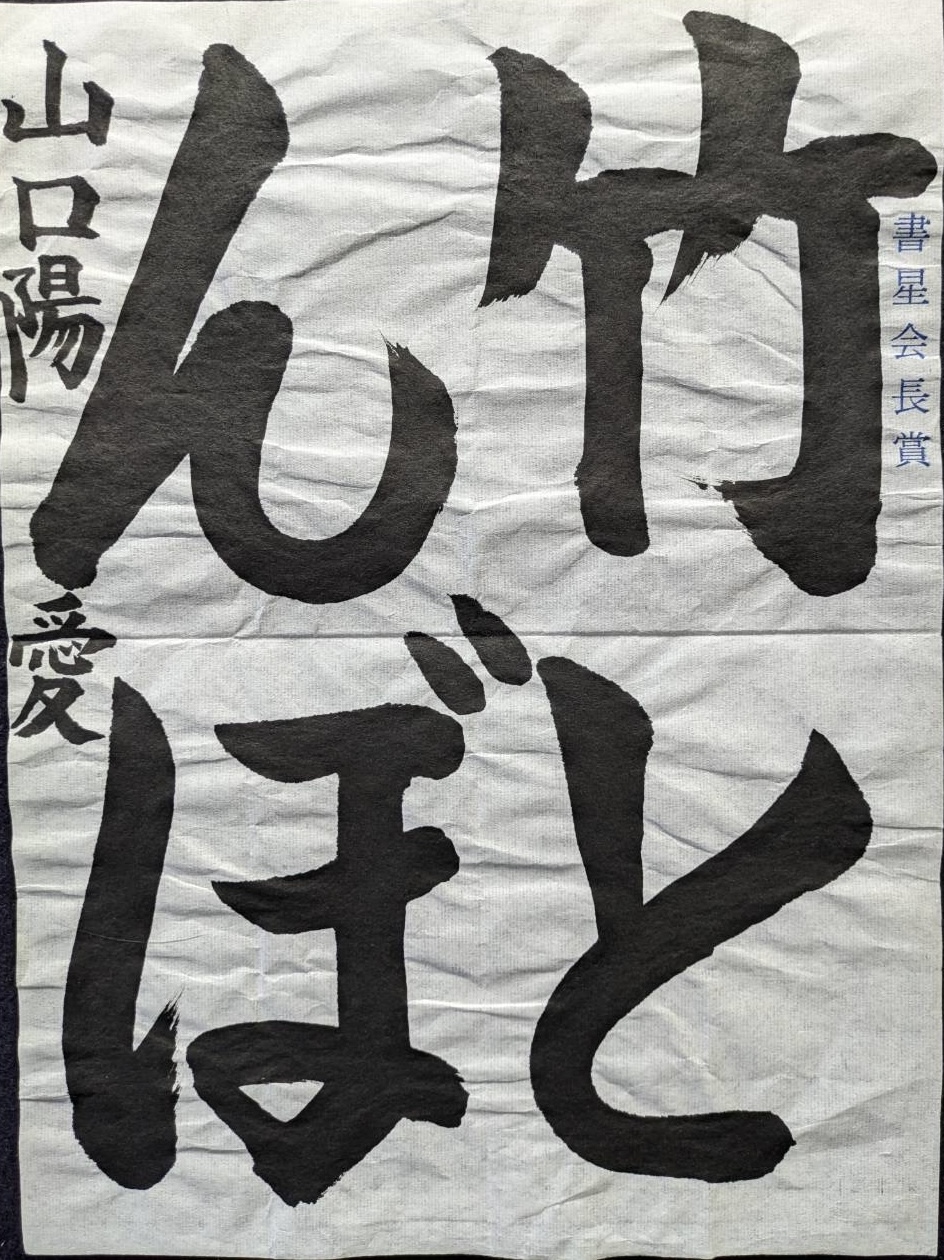 書星会長賞
竹と
んぼ
山口陽愛